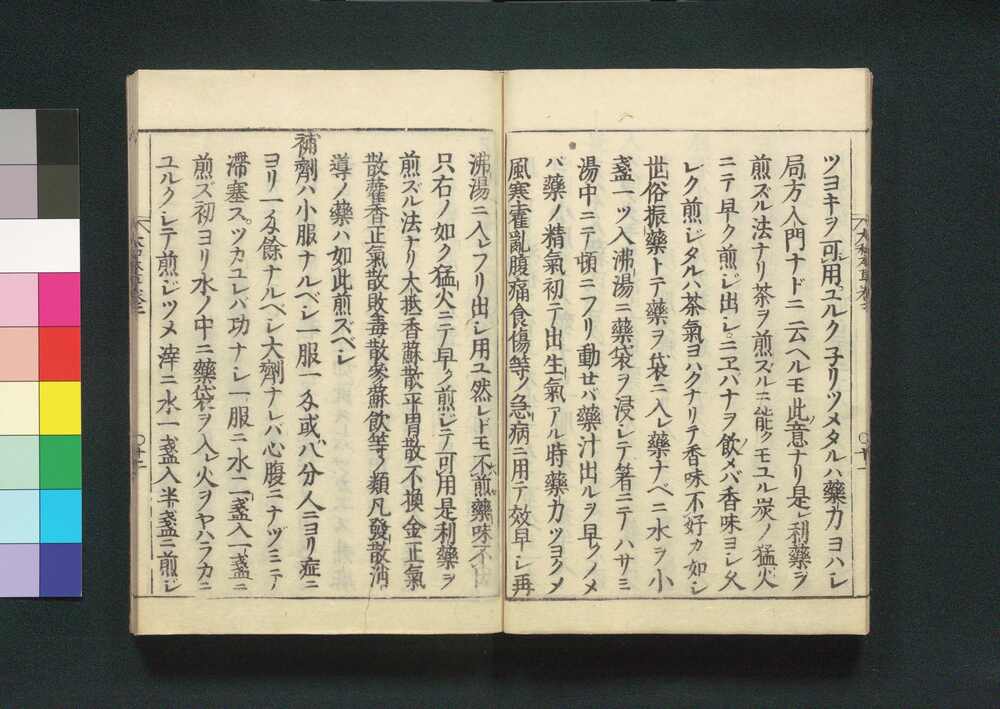 ツヨキヲ可用ユルク子リツメタルハ藥力ヨハシ
局方入門ナドニ云ヘルモ此意ナリ是レ利藥ヲ
煎ズル法ナリ茶ヲ煎ズルニ能クモユル炭ノ猛火
ニテ早ク煎ジ出シニヱバナヲ飲メバ香味ヨシ久
シク煎ジタルハ茶氣ヨハクナリテ香味不好カ如シ
世俗振藥トテ藥ヲ袋ニ入レ藥ナベニ水ヲ小
盞一ツ入沸湯ニ藥袋ヲ浸シテ箸ニテハサミ
湯中ニテ頓ニフリ動せバ藥汁出ルヲ早クノメ
バ藥ノ精氣初テ出生氣アル時藥力ツヨクメ
風寒霍亂腹痛食傷等ノ急病ニ用テ效早シ再
沸湯ニ入レフリ出シ用ユ然レドモ不煎藥味不出
只右ノ如ク猛火ニテ早ク煎ジテ可用是利藥ヲ
煎ズル法ナリ大抵香蘇散平胃散不換金正氣
散藿香正氣散敗毒散參蘇飲等ノ類凡發散消
導ノ藥ハ如此煎ズベシ
補劑ハ小服ナルベシ一服一匁或ハ八分人ニヨリ症ニ
ヨリ一匁餘ナルベシ大劑ナレバ心腹ニナヅミテ
滯塞スツカユレバ功ナシ一服ニ水二盞入一盞ニ
煎ズ初ヨリ水ノ中ニ藥袋ヲ入レ火ヲヤハラカニ
ユルクシテ煎ジツメ滓ニ水一盞入半盞ニ煎ジ